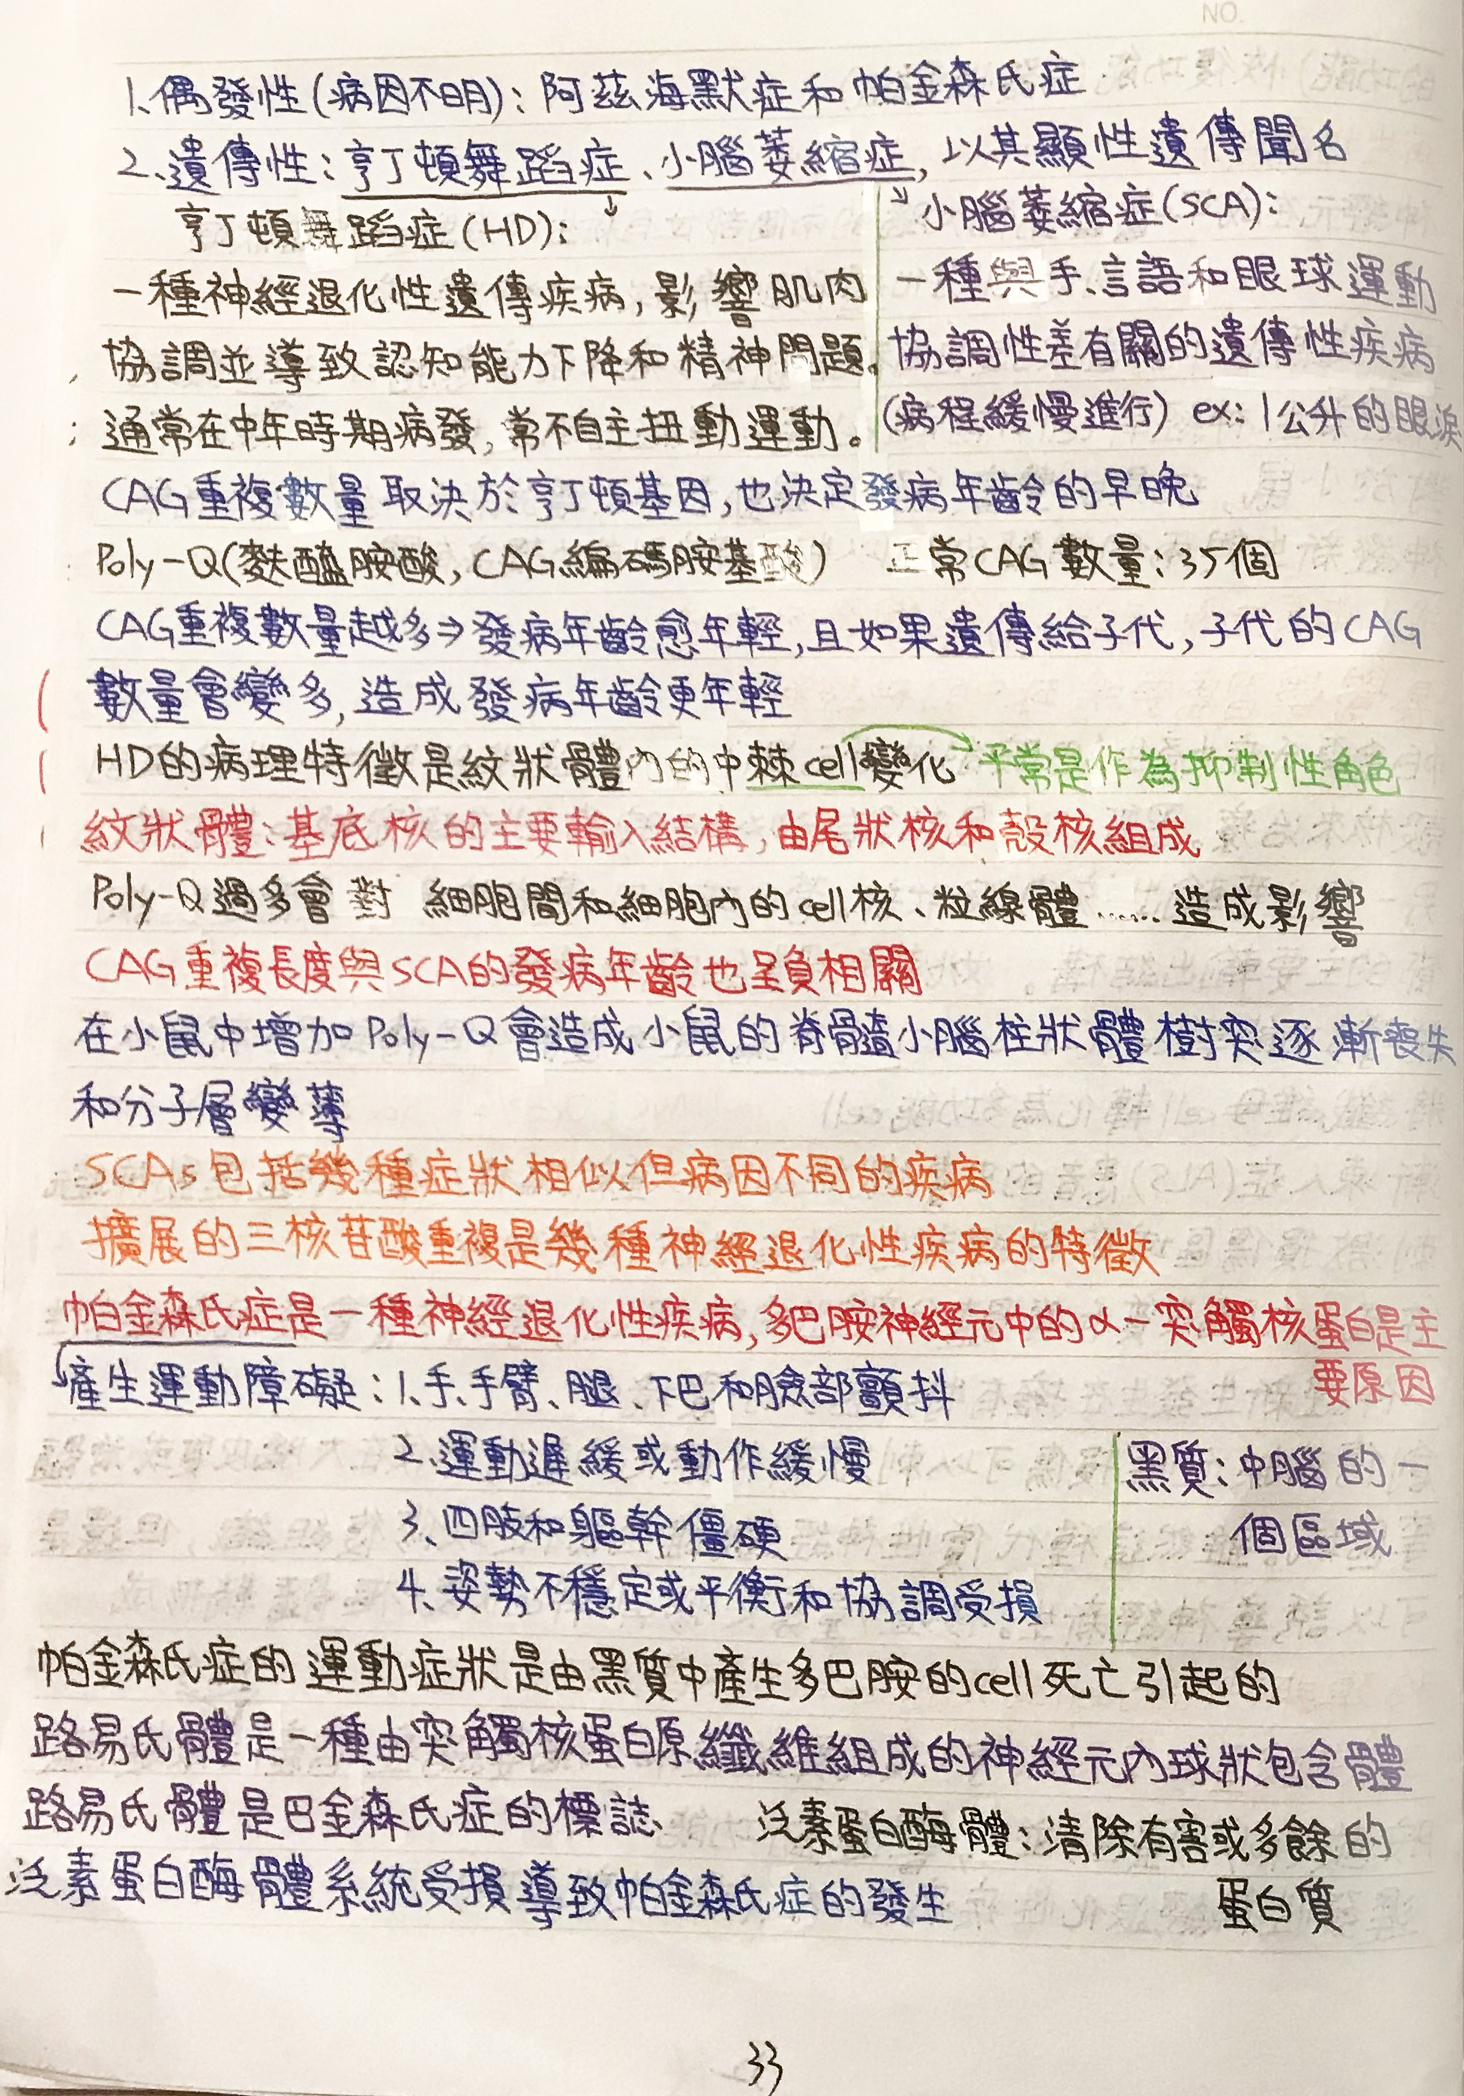 NO.
1、偶發性(病因不明)：阿茲海默症和帕金森氏症
2、遺傳性：亨丁頓舞蹈症、小腦萎縮症，以其顯性遺傳聞名
亨丁頓舞蹈症(HD)：
一種神經退化性遺傳疾病，影響肌肉
協調並導致認知能力下降和精神問題。
通常在中年時期病發，常不自主扭動運動。
小腦萎縮症(SCA)：
一種與手、言語和眼球運動
協調性差有關的遺傳性疾病
(病程緩慢進行) ex：1公升的眼淚
CAG重複數量取決於亨丁頓基因，也決定發病年齡的早晚
Poly-Q(麩醯胺酸，CAG編碼胺基酸) 正常CAG數量：35個
CAG重複數量越多→發病年齡愈年輕，且如果遺傳給子代，子代的CAG
數量會變多，造成發病年齡更年輕
HD的病理特徵是紋狀體內的中棘cell變化 平常是作為抑制性角色
紋狀體：基底核的主要輸入結構，由尾狀核和殼核組成
Poly-Q過多會對 細胞間和細胞內的cell核、粒線體……造成影響
CAG重複長度與SCA的發病年齡也呈負相關
在小鼠中增加Poly-Q會造成小鼠的脊髓小腦柱狀體樹突逐漸喪失
和分子層變薄
SCAs包括幾種症狀相似但病因不同的疾病
擴展的三核苷酸重複是幾種神經退化性疾病的特徵
帕金森氏症是一種神經退化性疾病，多巴胺神經元中的α-突觸核蛋白是主
要原因
產生運動障礙：1、手、手臂、腿、下巴和臉部顫抖
2、運動遲緩或動作緩慢
3、四肢和軀幹僵硬
4、姿勢不穩定或平衡和協調受損
黑質：中腦的一
個區域
帕金森氏症的運動症狀是由黑質中產生多巴胺的cell死亡引起的
路易氏體是一種由突觸核蛋白原纖維組成的神經元內球狀包含體
路易氏體是巴金森氏症的標誌、
泛素蛋白酶體：清除有害或多餘的
蛋白質
泛素蛋白酶體系統受損導致帕金森氏症的發生
33